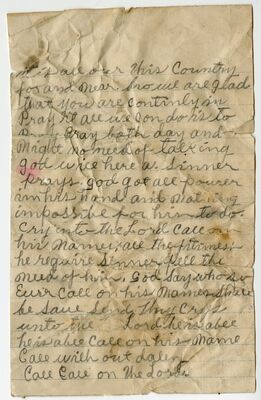 it is all over this Country
far and near. So we are glad
that you are contin in
Pray all we Can do is to
Pray Pray both day and
Night no need of talking
god will here a Sinner
Prays. god got all Pourer
in his hand and
impossible for him to do.
Cry into the Lord Call on
his Name all the times
he require Sinner feel the
need of him. God Say who so
Eurr Call on his Name Shall
be Save Send thy Crys
unto the Lord he is abee
he is abee Call on his Name
Call with out dalay
Call Call on the Lord.